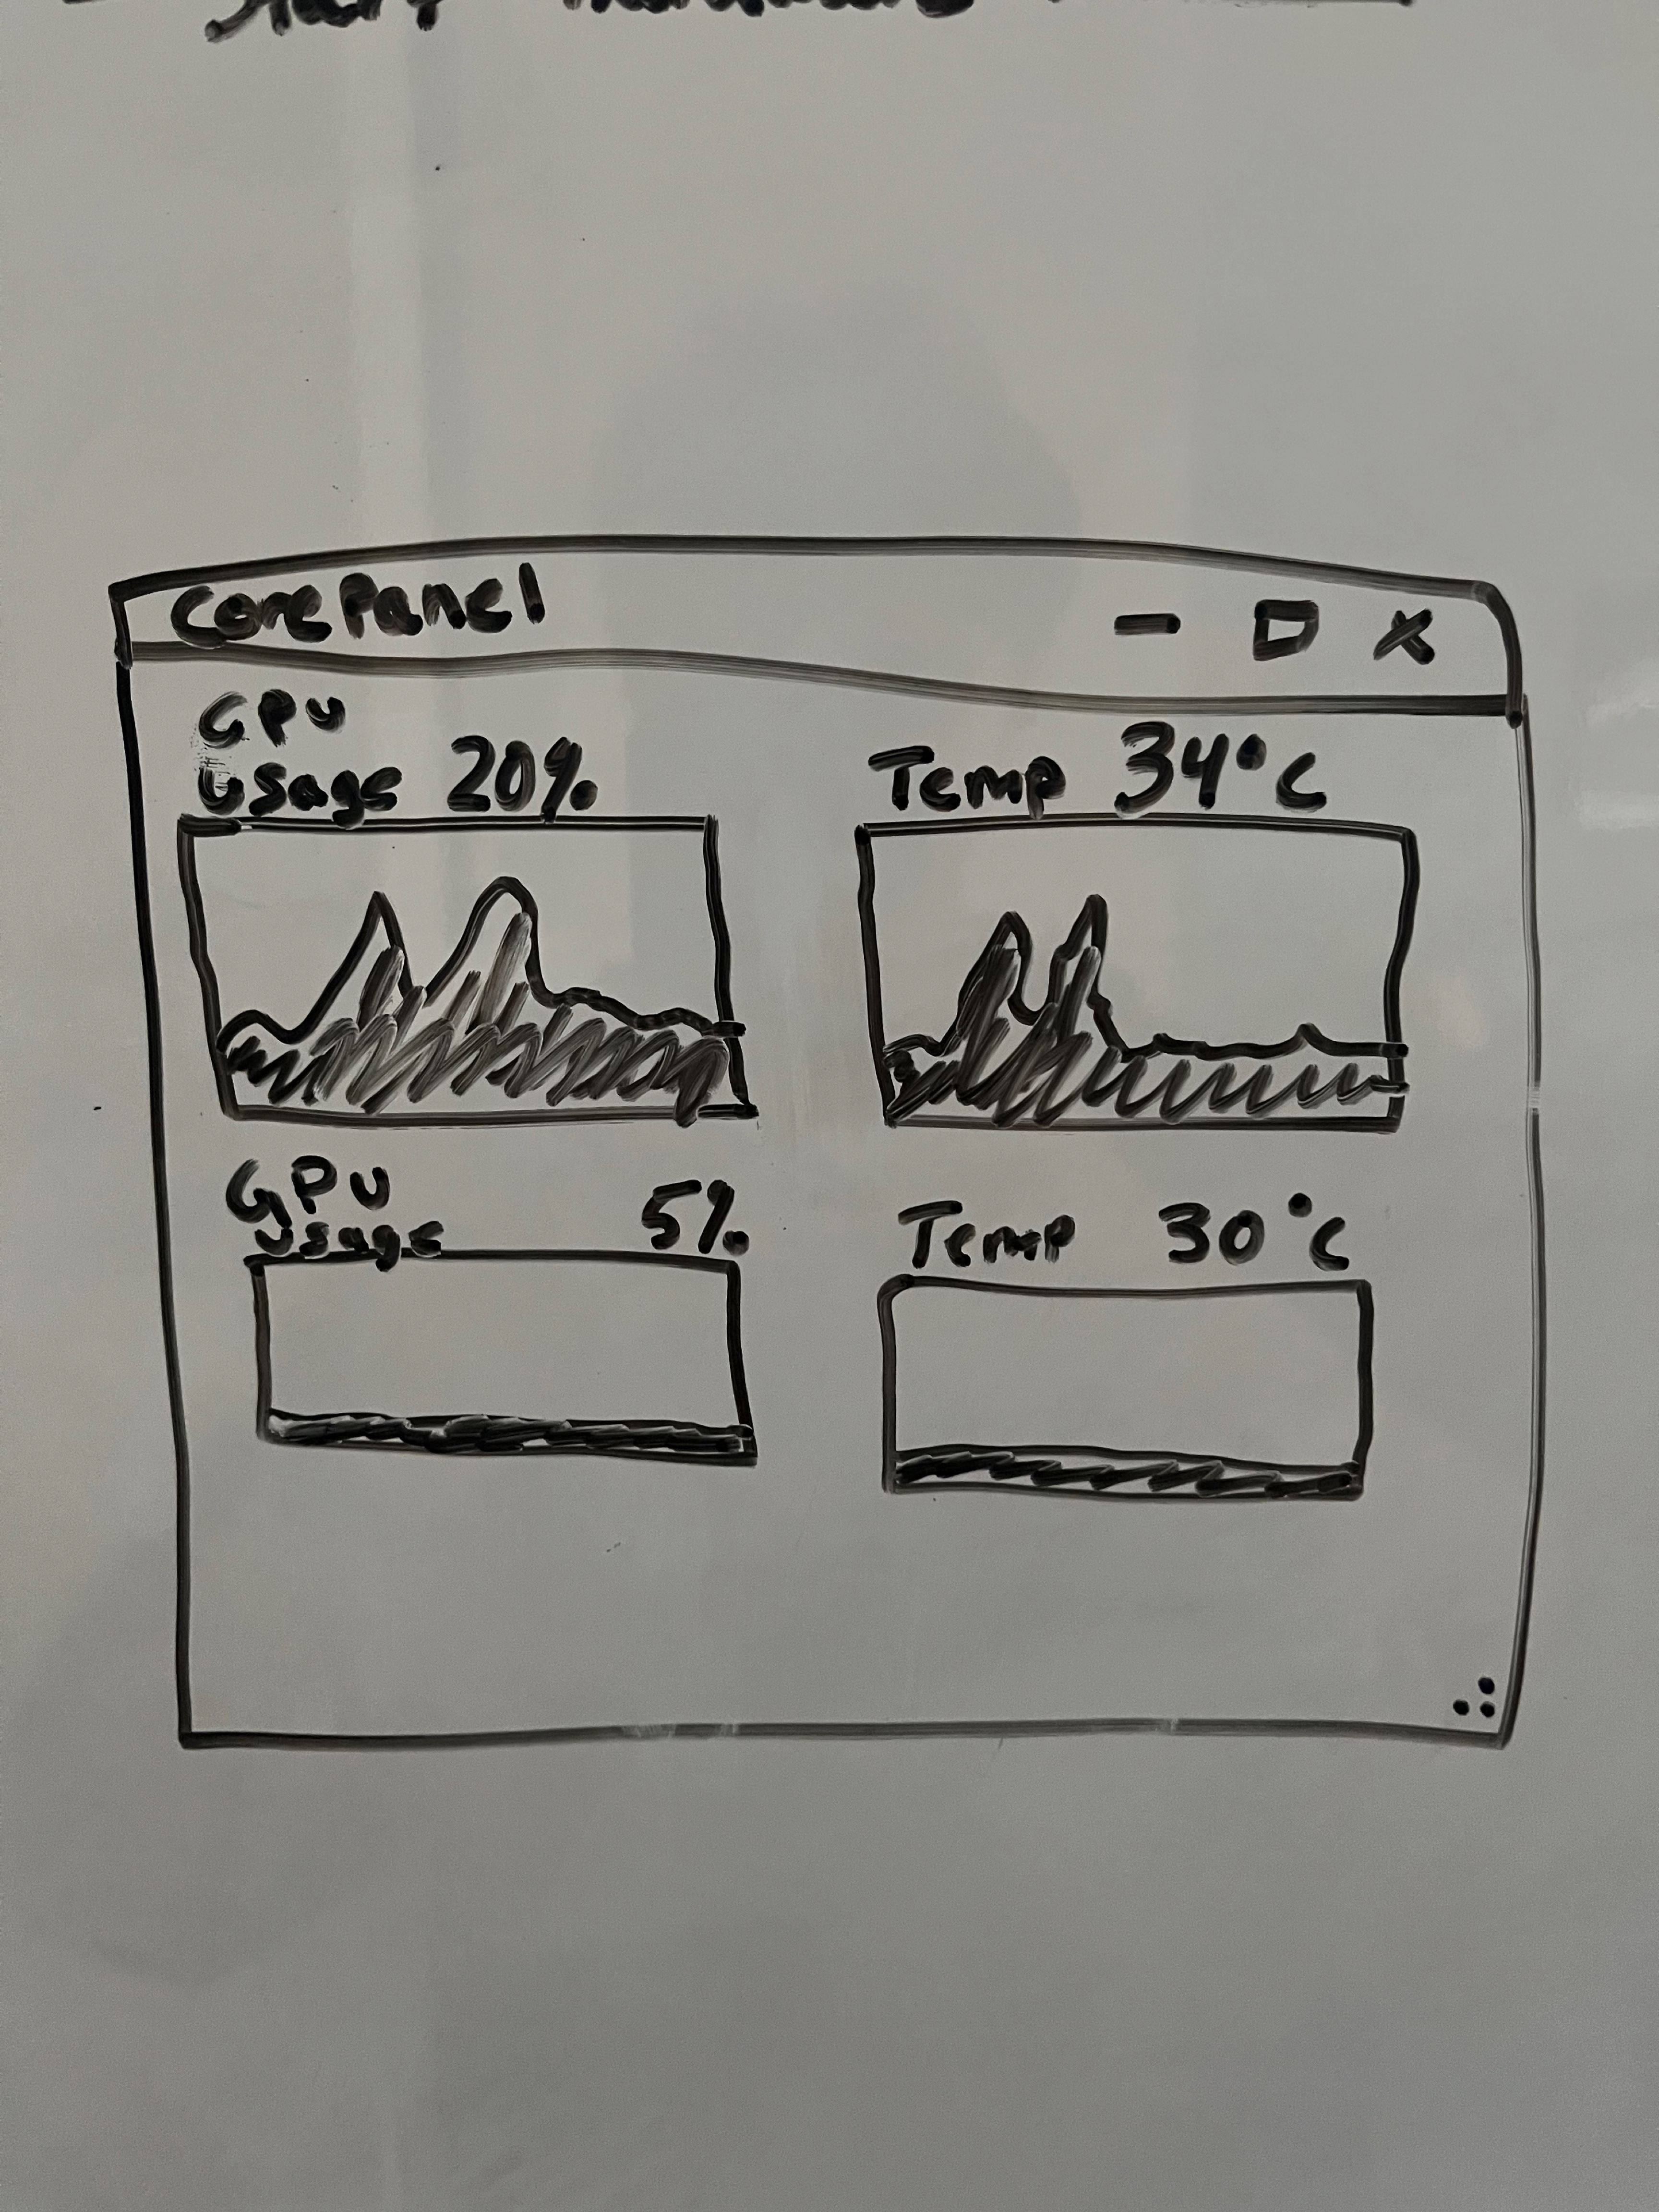 CorePanel
CPU
Usage 20%
Temp 34°C
GPU
Usage 5%
Temp 30°C